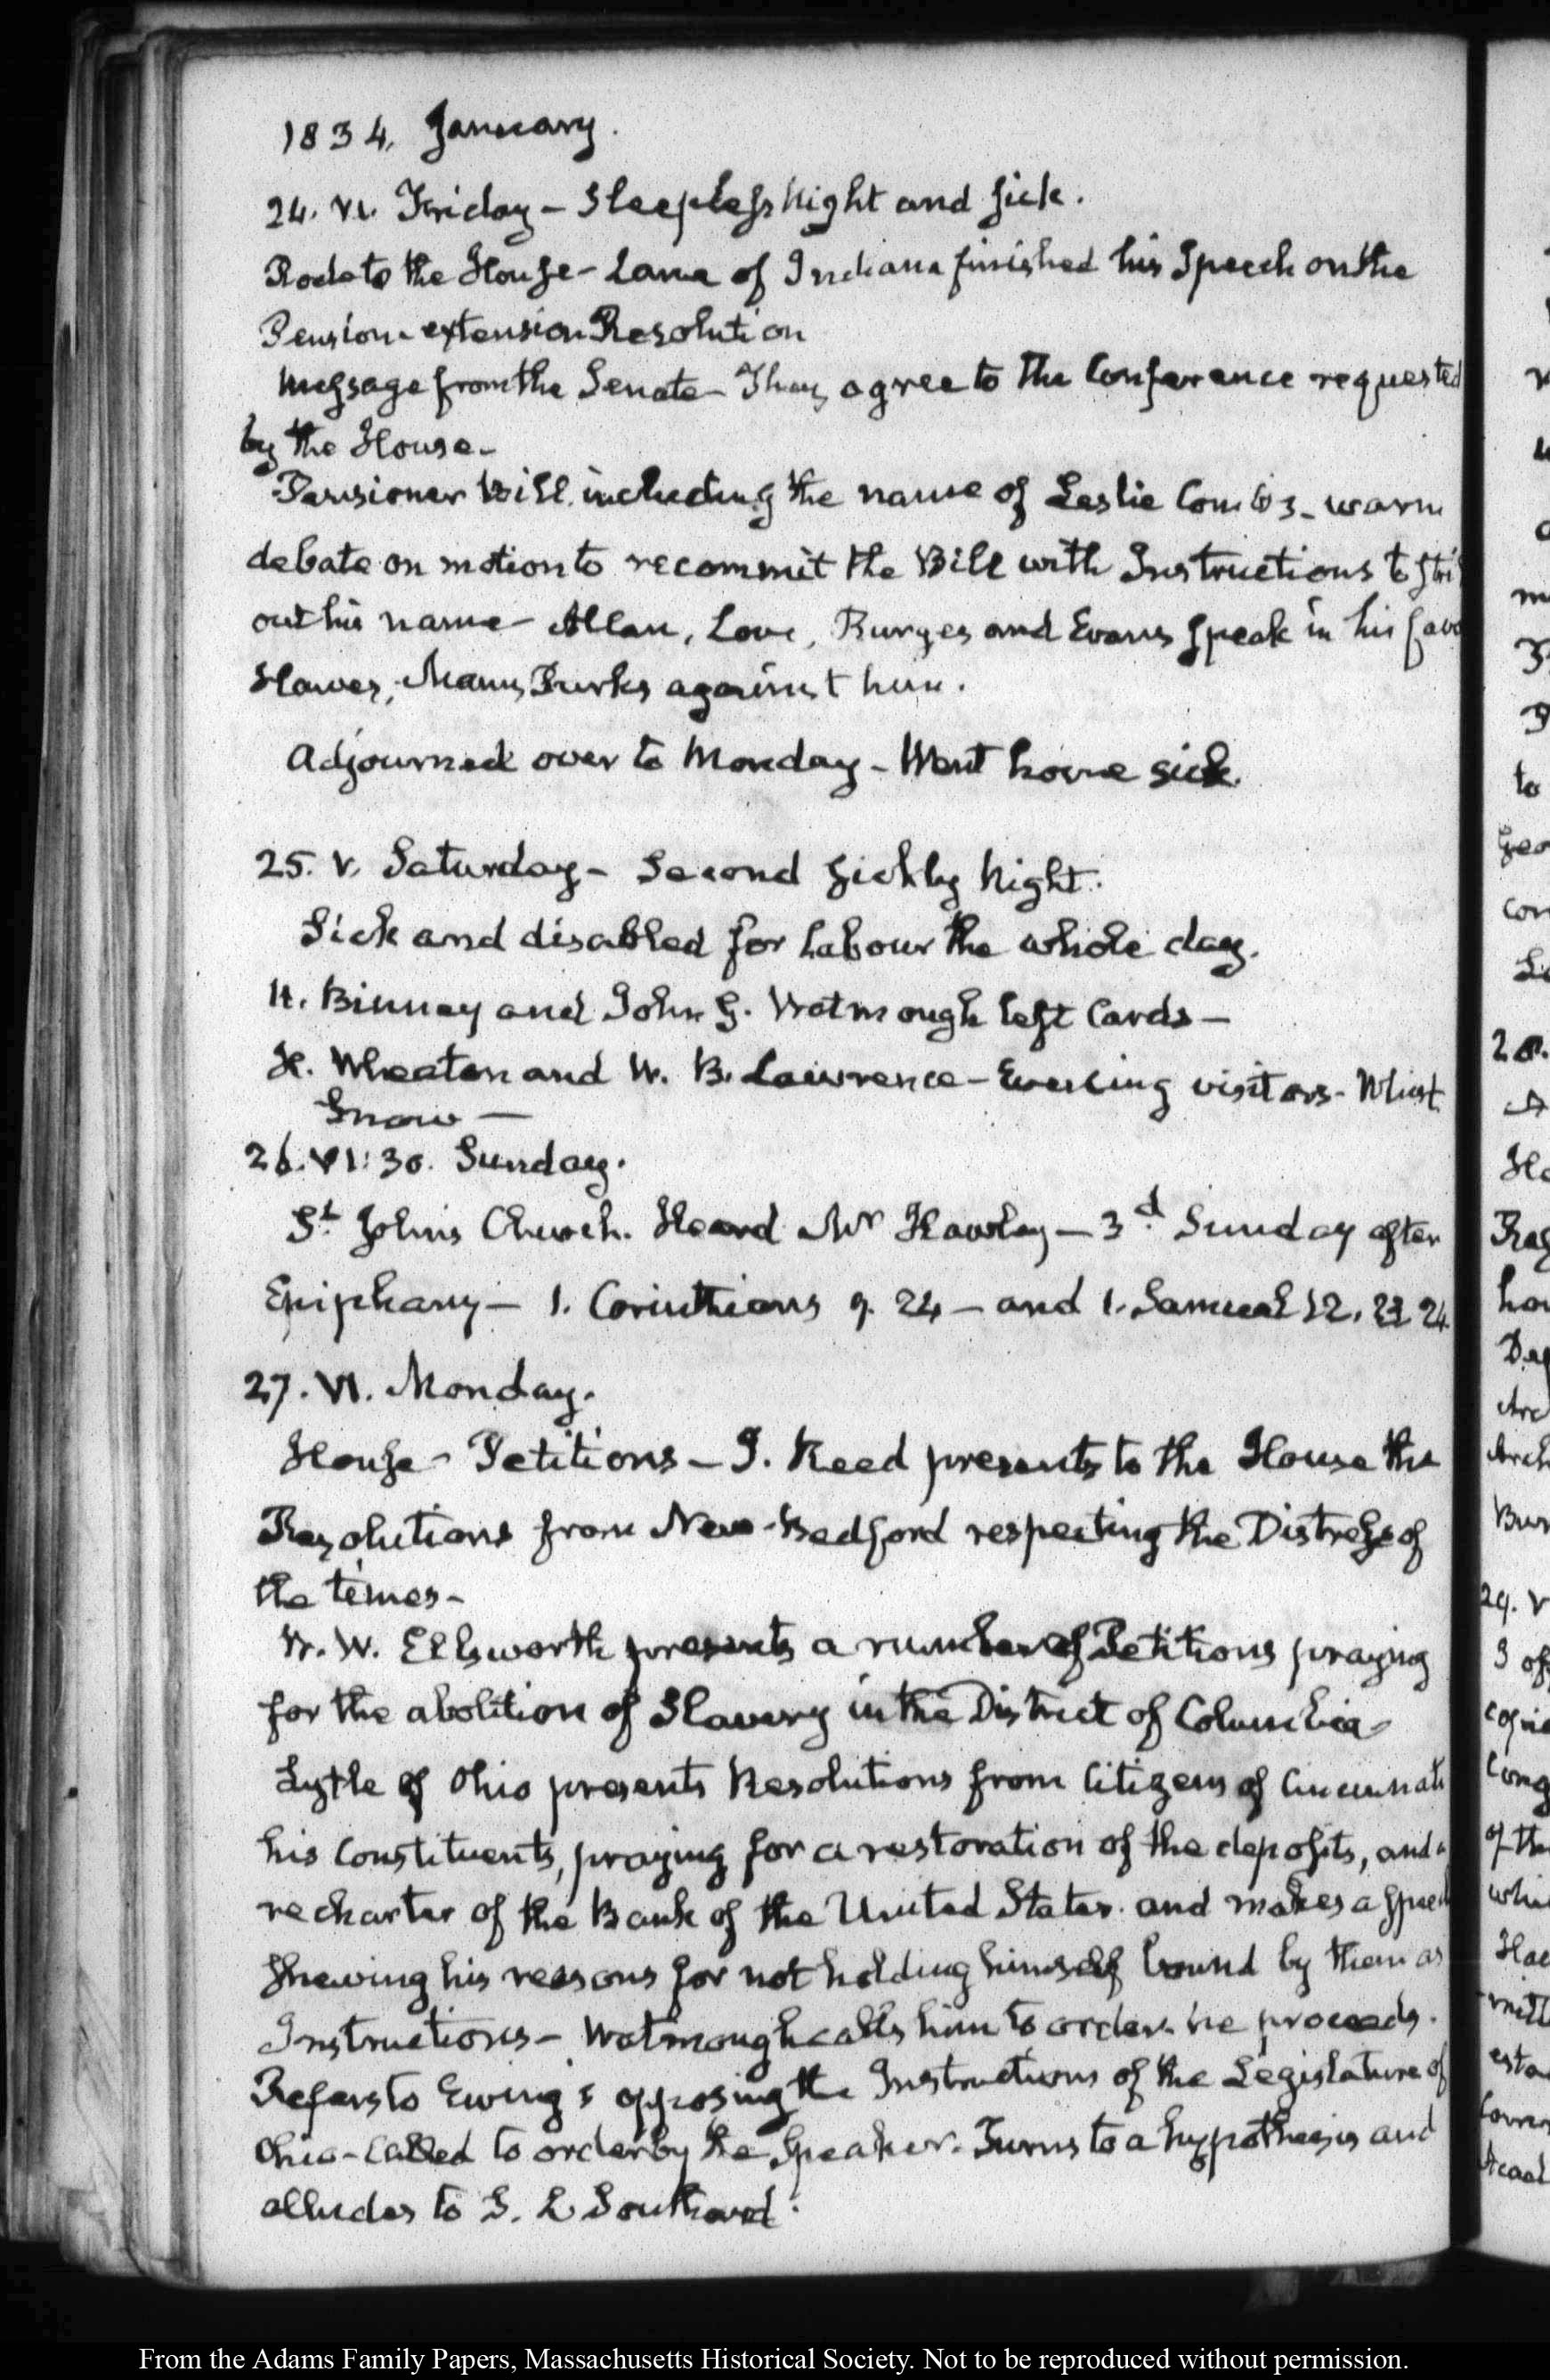 1834, January.
24. VI. Friday - Sleepless Night and sick.
Rode to the House - Lane of Indiana finished his Speech on the
Pension-extension Resolution
Message from the Senate - They agree to the Conference requested
by the House -
Pensioner Bill including the name of Leslie Combs - warm
debate on motion to recommit the Bill with Instructions to stri
out his name - Allan, Love, Burges and Evans speak in his favo
Hawes, Mann, Burks against him.
Adjourned over to Monday - Went home sick.
25. V. Saturday - Second sickly Night.
Sick and disabled for labour the whole day.
H. Binney and John G. Watmough left Cards -
H. Wheaton and W. B. Lawrence - Evening visitors - Whist
Snow -
26. VI:30. Sunday.
St. Johns Church. Heard Mr Hawley - 3d. Sunday after
Epiphany - 1. Corinthians 9. 24 - and 1. Samuel 12. 23 24.
27. VI. Monday.
House - Petitions - J. Reed presents to the House the
Resolutions from New-Bedford respecting the Distress of
the times -
W. W. Ellsworth presents a number of Petitions praying
for the abolition of Slavery in the District of Columbia -
Lytle of Ohio presents Resolutions from Citizens of Cincinnati
his Constituents, praying for a restoration of the deposits, and a
recharter of the Bank of the United States. and makes a speech
shewing his reasons for not holding himself bound by them as
Instructions - Watmough calls him to order. he proceeds.
Refers to Ewing's opposing the Instructions of the Legislature of
Ohio - Called to order by the Speaker. Turns to a hypothesis and
alludes to S. L Southard.
From the Adams Family Papers, Massachusetts Historical Society. Not to be reproduced without permission.